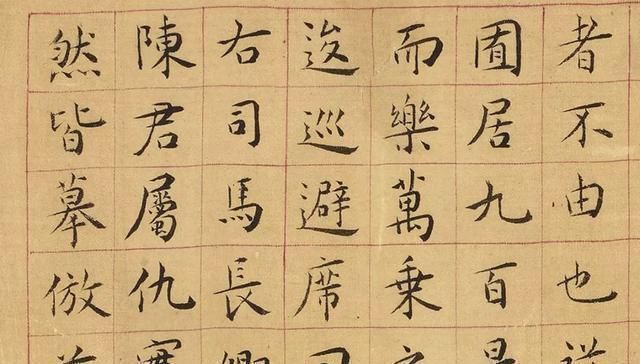 者不由也
囿居九百是
而樂萬乘之
逡巡避席
右司馬長卿
陳君屬仇實
然皆摹倣